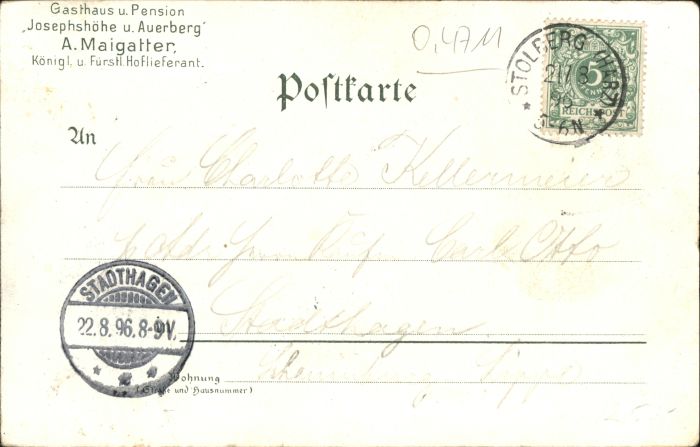 Gasthaus u. Pension
„Josephshöhe u. Auerberg“
A. Maigatter,
Königl. u. Fürstl. Hoflieferant.
0,4711
STOLBERG (HARZ)
21/7 8
96
5-6N
5
REICHSPOST
Postkarte
An
Frau Charlotte Kellermeier
Carl Otto
Stadthagen
Schaumburg Lippe
STADTHAGEN
22.8.96.8-9V.
Wohnung
(Straße und Hausnummer)